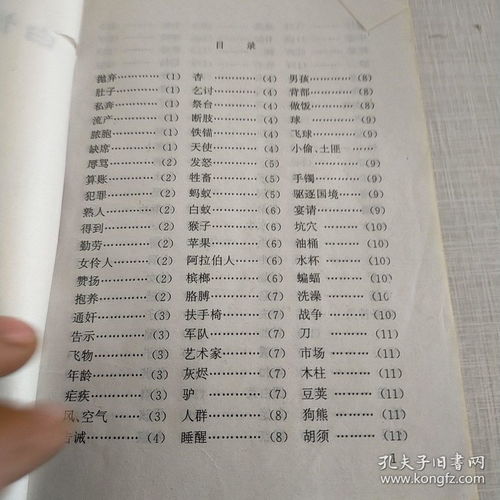 目 录
抛弃…………(1)
肚子…………(1)
私奔…………(1)
流产…………(1)
脓胞…………(1)
缺席…………(1)
辱骂…………(2)
算账…………(2)
犯罪…………(2)
熟人…………(2)
得到…………(2)
勤劳…………(2)
女伶人………(2)
赞扬…………(2)
抱养…………(2)
通奸…………(3)
告示…………(3)
飞物…………(3)
年龄…………(3)
疟疾…………(3)
风、空气……(3)
告诫…………(4)
杏……………(4)
乞讨…………(4)
祭台…………(4)
断肢…………(4)
铁锚…………(4)
天使…………(4)
发怒…………(5)
牲畜…………(5)
蚂蚁…………(5)
白蚁…………(6)
猴子…………(6)
苹果…………(6)
阿拉伯人……(6)
槟榔…………(6)
胳膊…………(7)
扶手椅………(7)
军队…………(7)
艺术家………(7)
灰烬…………(7)
驴……………(7)
人群…………(8)
睡醒…………(8)
男孩…………(8)
背部…………(8)
做饭…………(8)
球……………(9)
飞球…………(9)
小偷、土匪……
…………(9)
手镯…………(9)
驱逐国境……(9)
宴请…………(9)
坑穴…………(10)
油桶…………(10)
水杯…………(10)
蝙蝠…………(10)
洗澡…………(10)
战争…………(10)
刀……………(11)
市场…………(11)
木柱…………(11)
豆荚…………(11)
狗熊…………(11)
胡须…………(11)
1
孔夫子旧书网
www.kongfz.com